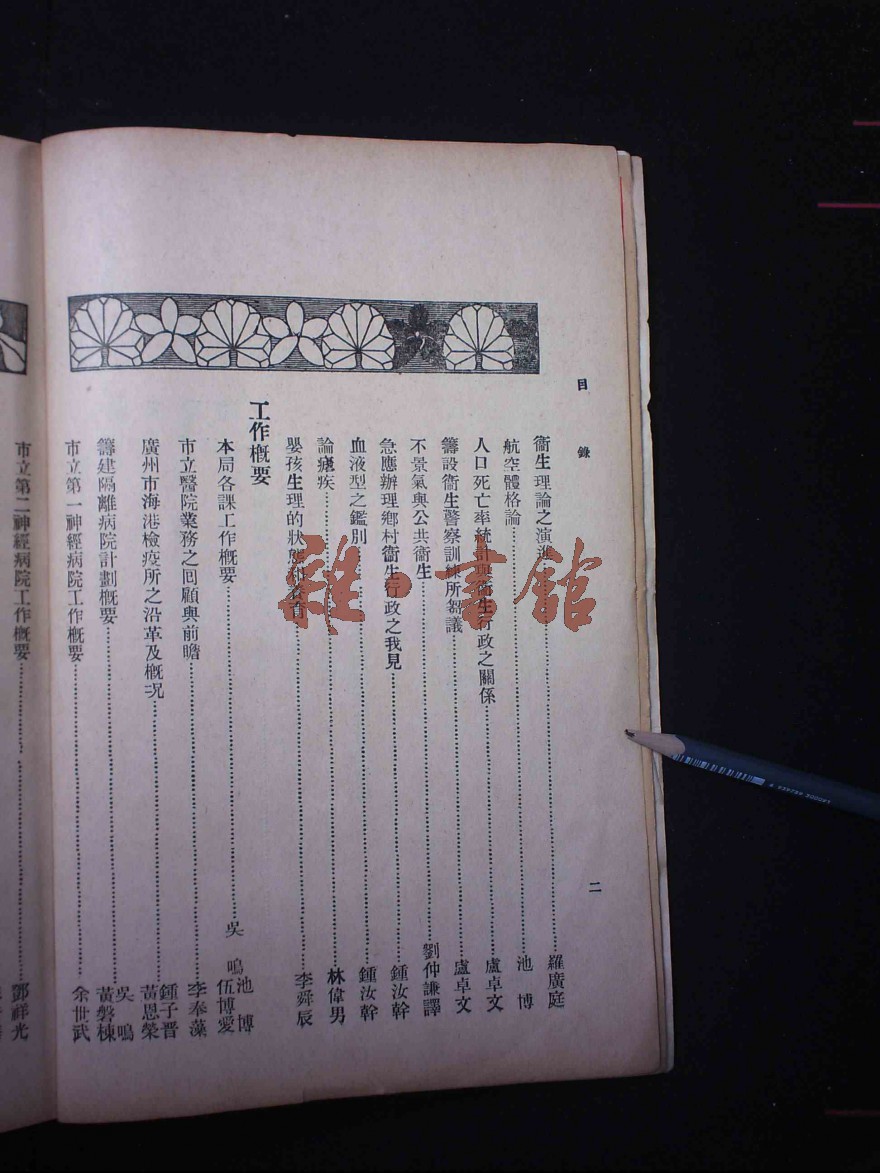 目錄
二
衞生理論之演進……羅廣庭
航空體格論……池博
人口死亡率統計與衞生行政之關係……盧卓文
籌設衞生警察訓練所芻議……盧卓文
不景氣與公共衞生……劉仲謙譯
急應辦理鄉村衞生行政之我見……鍾汝幹
血液型之鑑別……鍾汝幹
論癘疾……林偉男
嬰孩生理的狀態和養育……李舜辰
工作概要
本局各課工作概要……吳鳴 池博 伍博愛
市立醫院業務之回顧與前瞻……李奉藻
廣州市海港檢疫所之沿革及概況……鍾子晋 黃恩榮
籌建隔離病院計劃概要……吳鳴 黃磐棟
市立第一神經病院工作概要……余世武
市立第二神經病院工作概要……鄧祥光
雜·書館